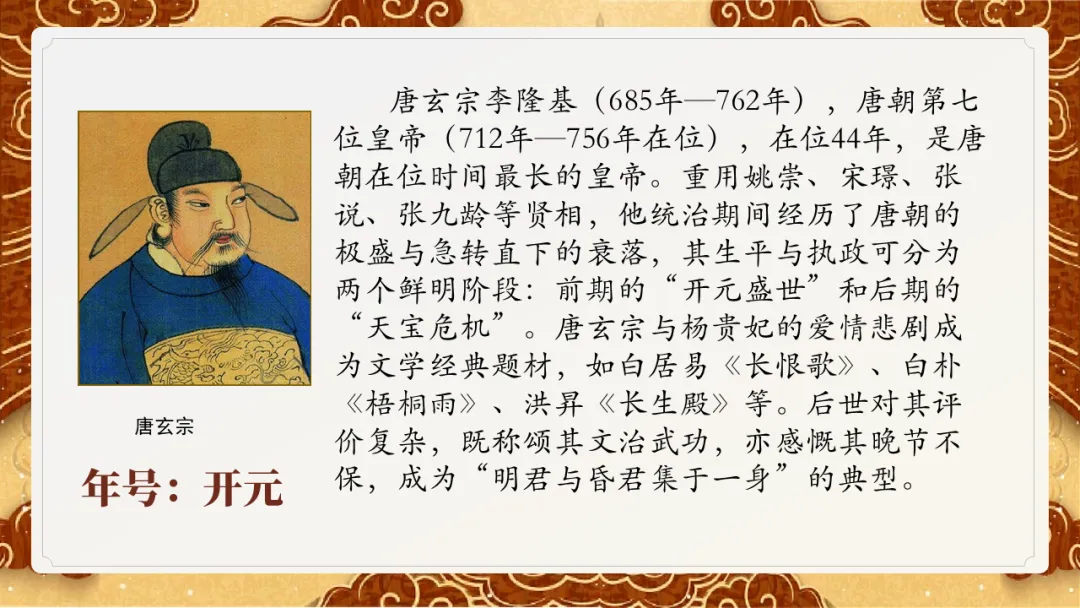 唐玄宗李隆基（685年—762年），唐朝第七
位皇帝（712年—756年在位），在位44年，是唐
朝在位时间最长的皇帝。重用姚崇、宋璟、张
说、张九龄等贤相，他统治期间经历了唐朝的
极盛与急转直下的衰落，其生平与执政可分为
两个鲜明阶段：前期的“开元盛世”和后期的
“天宝危机”。唐玄宗与杨贵妃的爱情悲剧成
为文学经典题材，如白居易《长恨歌》、白朴
《梧桐雨》、洪昇《长生殿》等。后世对其评
价复杂，既称颂其文治武功，亦感慨其晚节不
保，成为“明君与昏君集于一身”的典型。
唐玄宗
年号：开元